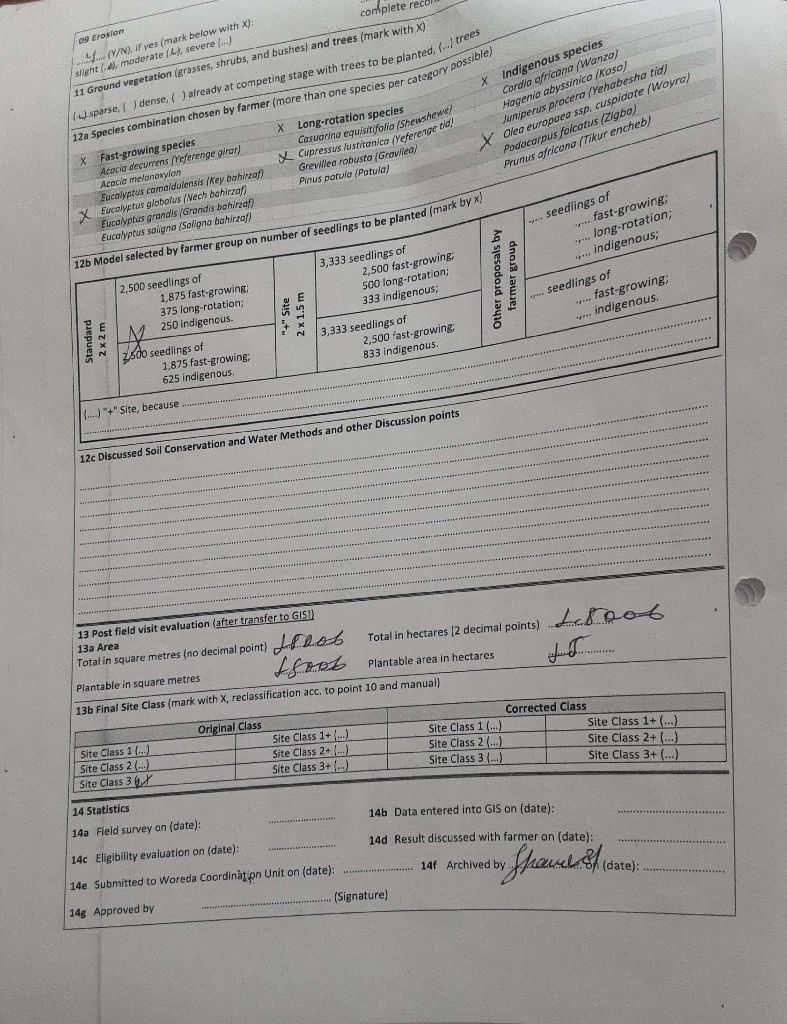 complete
09 Erosion
(Y/N), if yes (mark below with X):
slight, moderate, severe (...)
11 Ground vegetation (grasses, shrubs, and bushes) and trees (mark with X)
sparse, ( ) dense, ( ) already at competing stage with trees to be planted, (...) trees
12a Species combination chosen by farmer (more than one species per category possible)
X Fast-growing species
Acacia decurrens (Yeferenge girar)
Acacia melanoxylon
Eucalyptus camaldulensis (Key bahirzaf)
X Eucalyptus globolus (Nech bahirzaf)
Eucalyptus grandis (Grandis bahirzaf)
Eucalyptus saligna (Saligna bahirzaf)
X Long-rotation species
Casuarina equisitifolia (Shewshewe)
X Cupressus lustitanica (Yeferenge tid)
Grevillea robusta (Gravilea)
Pinus patula (Patula)
X Indigenous species
Cordia africana (Wanza)
Hagenia abyssinica (Koso)
Juniperus procera (Yehabesha tid)
X Olea europaea ssp. cuspidate (Woyra)
Podocarpus falcatus (Zigba)
Prunus africana (Tikur encheb)
12b Model selected by farmer group on number of seedlings to be planted (mark by x)
Standard
2 x 2 m
2,500 seedlings of
1,875 fast-growing;
375 long-rotation;
250 indigenous.
X
2,500 seedlings of
1,875 fast-growing;
625 indigenous.
"+" Site
2 x 1.5 m
3,333 seedlings of
2,500 fast-growing;
500 long-rotation;
333 indigenous;
3,333 seedlings of
2,500 fast-growing;
833 indigenous.
Other proposals by
farmer group
..... seedlings of
..... fast-growing;
..... long-rotation;
..... indigenous;
..... seedlings of
..... fast-growing;
..... indigenous.
(...) "+" Site, because
12c Discussed Soil Conservation and Water Methods and other Discussion points
13 Post field visit evaluation (after transfer to GIS!)
13a Area
Total in square metres (no decimal point)
Total in hectares [2 decimal points)
Plantable in square metres
Plantable area in hectares
13b Final Site Class (mark with X, reclassification acc. to point 10 and manual)
Original Class
Corrected Class
Site Class 1 (...) Site Class 1+ (...) Site Class 1 (...) Site Class 1+ (...)
Site Class 2 (...) Site Class 2+ (...) Site Class 2 (...) Site Class 2+ (...)
Site Class 3 (X Site Class 3+ (...) Site Class 3 (...) Site Class 3+ (...)
14 Statistics
14a Field survey on (date): ....................
14b Data entered into GIS on (date): ....................
14c Eligibility evaluation on (date): ....................
14d Result discussed with farmer on (date): ....................
14e Submitted to Woreda Coordination Unit on (date): ....................
14f Archived by on (date): ....................
14g Approved by .................... (Signature)